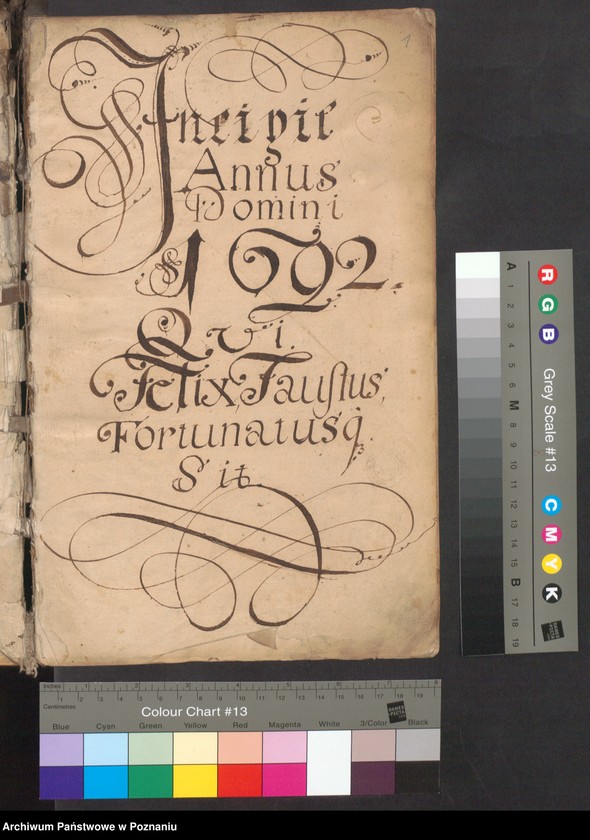 1
Incipit
Annus
Domini
1692.
Qvi.
Felix, Faustus,
Fortunatusq
Sit
A 1 2 3 4 5 6 M 8 9 10 11 12 13 14 15 B 17 18 19
R G B Grey Scale #13 C M Y K
DANES PICTA
Inches 1 2 3 4 5 6 7 8
1 2 3 4 5 6 7 8 9 10 11 12 13 14 15 16 17 18 19
Centimetres
Colour Chart #13
DANES PICTA
Blue Cyan Green Yellow Red Magenta White 3/Color Black
Archiwum Państwowe w Poznaniu